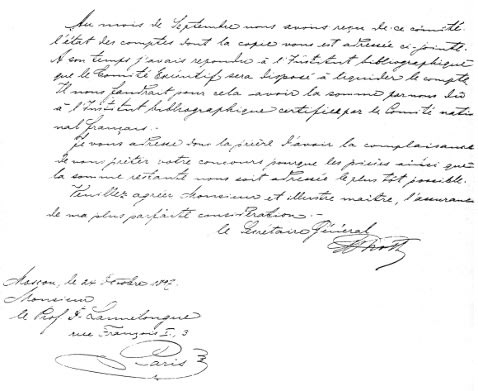 Au mois de Septembre nous avons reçu de ce comité
l'état des comptes dont la copie vous est adressée ci-jointe.
A son temps j'avais repondre à l'Institut bibliographique
que le Comité Exécutif sera disposé à liquider le compte.
Il nous faudrait pour cela avoir la somme par nous du
à l'Institut bibliographique certifiée par le Comité natio-
nal français.
Je vous adresse donc la prière d'avoir la complaisance
de nous prêter votre concours pourque les pièces ainsi que
la somme restante nous soit adressée le plus tôt possible.
Veuillez agréer Monsieur et illustre maître, l'assurance
de ma plus parfaite considération.-
le Secrétaire Général
Moscou, le 24 Octobre 1897.
Monsieur
le Prof. Dr. Lannelongue
rue François I., 3
Paris